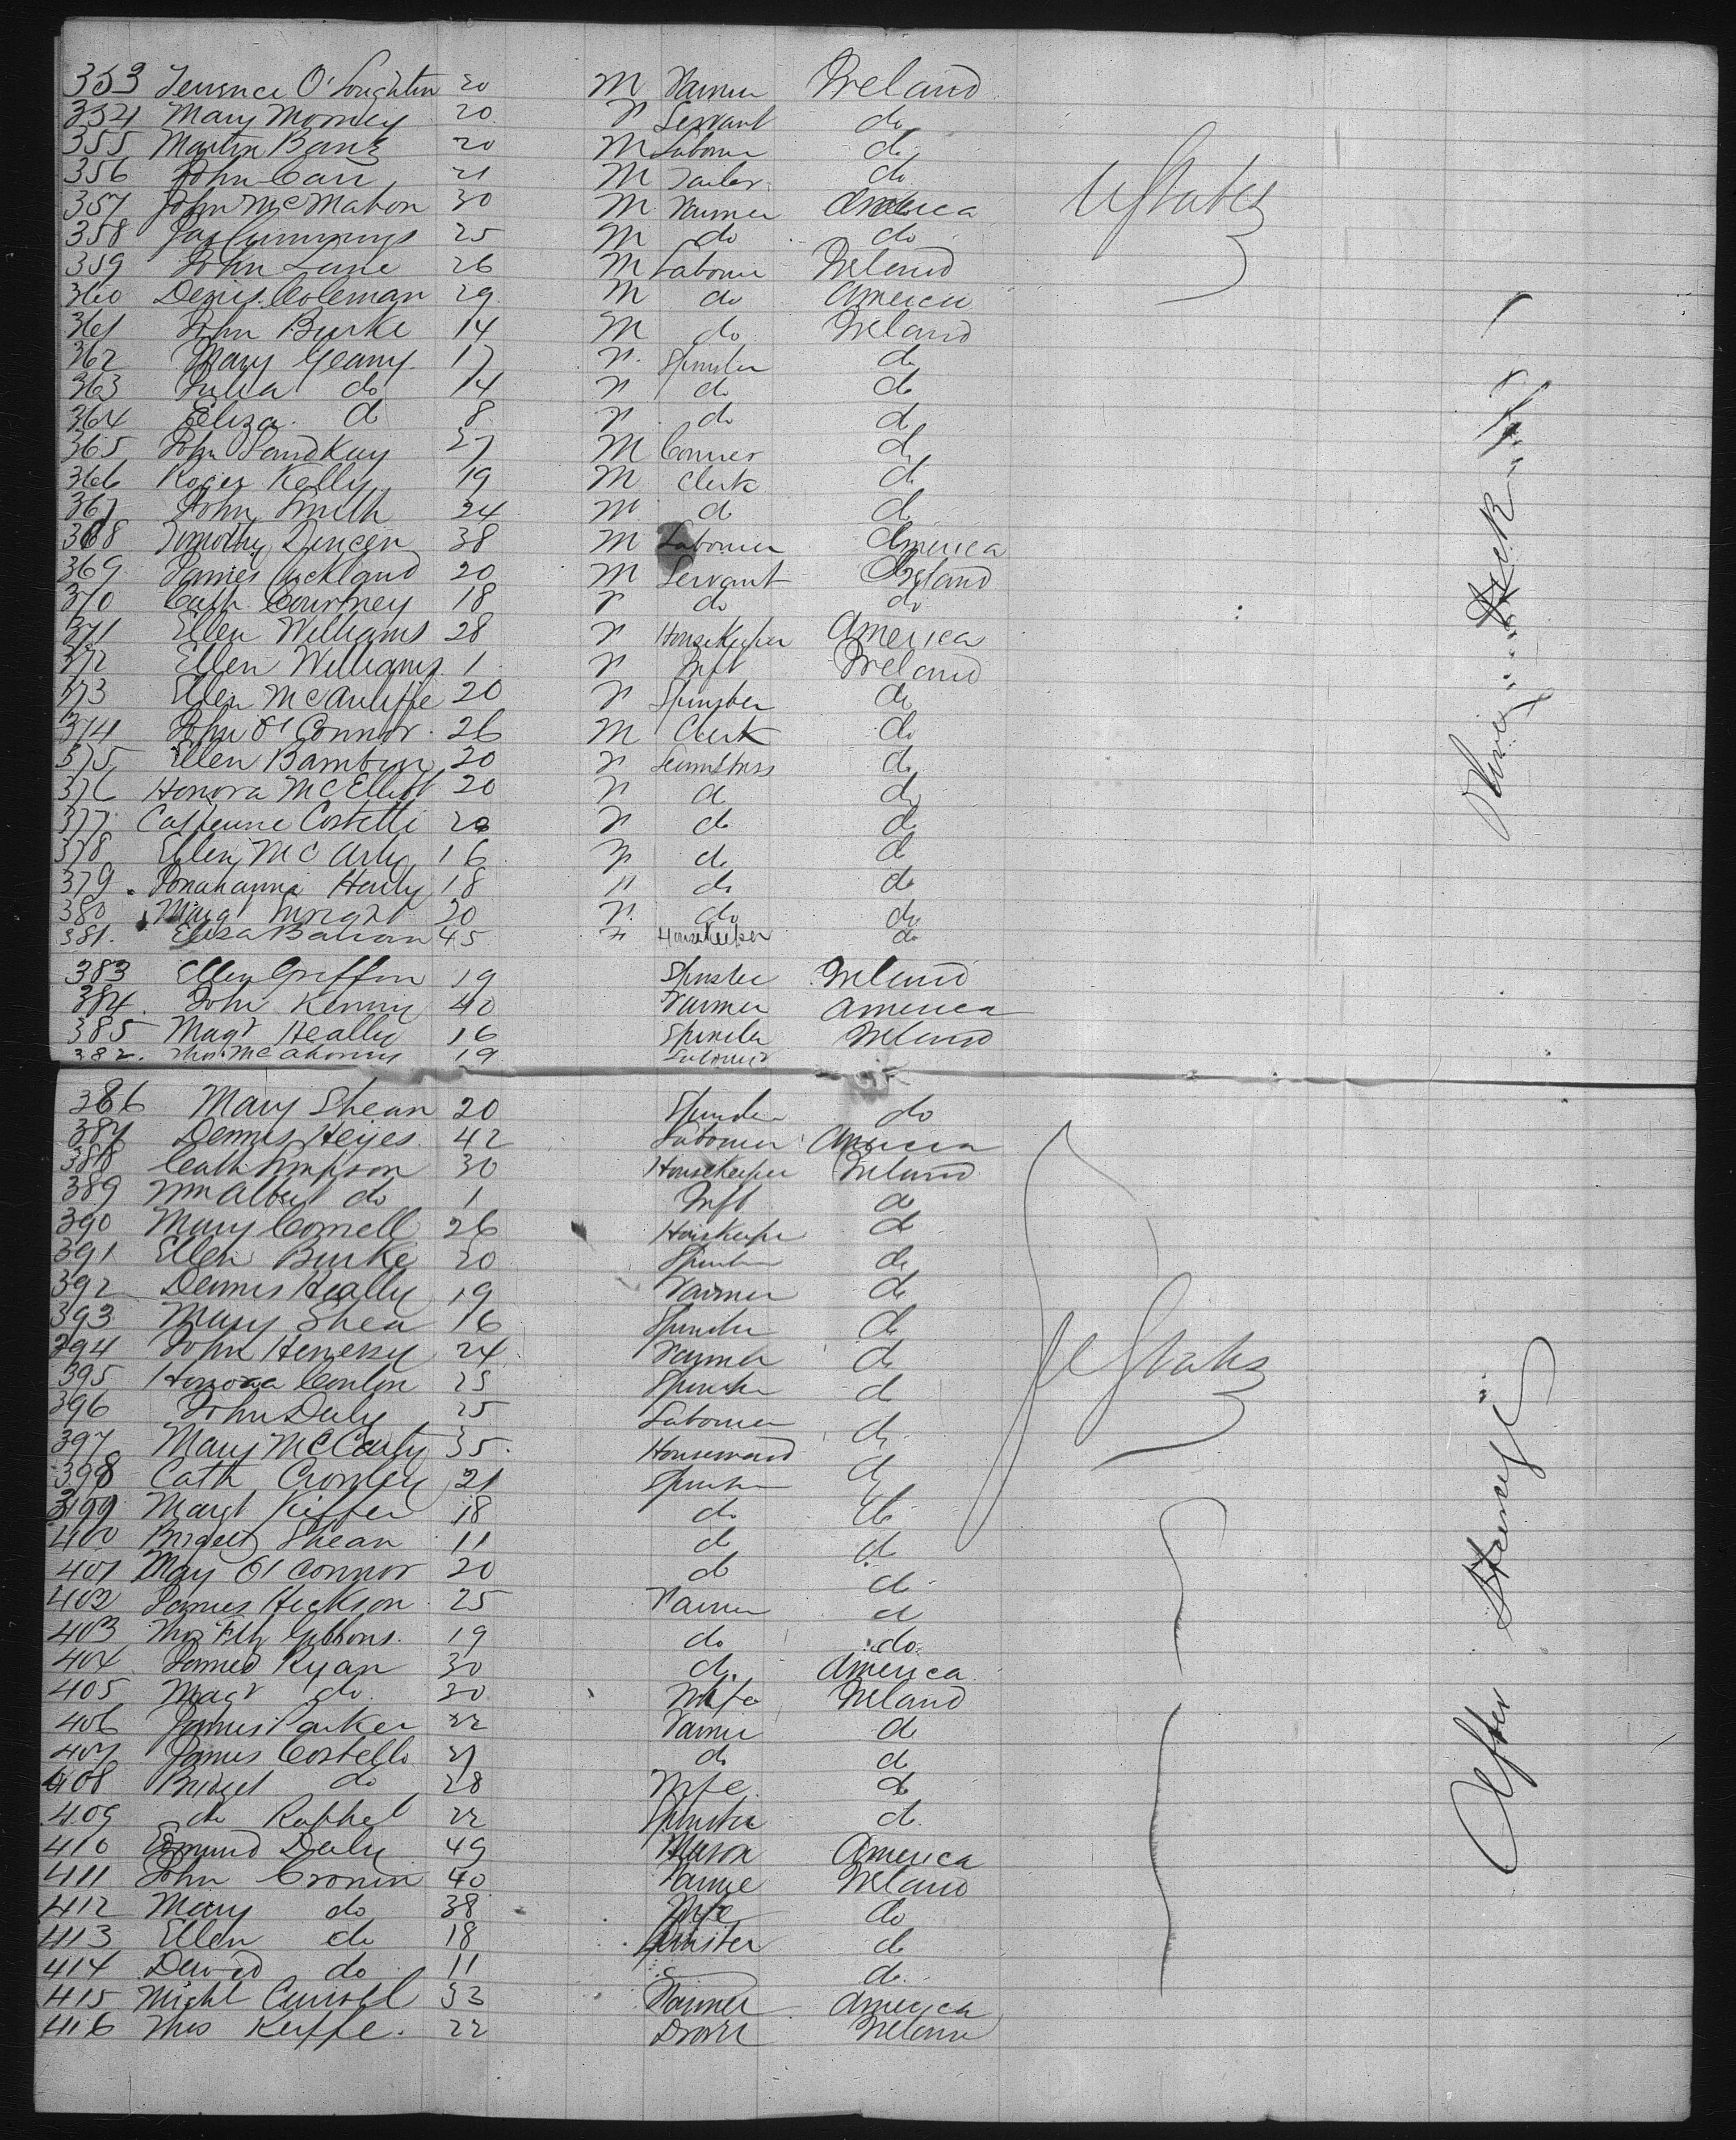 353 Terrence O'Loughlin 20 M Farmer Ireland
354 Mary Mooney 20 F Servant do
355 Martin Bane 20 M Laborer do
356 John Carr 21 M Tailor do
357 John McMahon 30 M Farmer America
358 Jas Cummings 25 M do do
359 John Lane 26 M Laborer Ireland
360 Denis Coleman 29 M do America
361 John Burke 14 M do Ireland
362 Mary Geany 17 F Spinster do
363 Julia do 14 F do do
364 Eliza do 8 F do do
365 John 27 M do
366 Roger Kelly 19 M Clerk do
367 John Smith 24 M do do
368 Timothy 38 M Laborer America
369 James Auckland 20 M Servant Ireland
370 Cath Courtney 18 F do do
371 Ellen Williams 28 F HouseKeeper America
372 Ellen Williams 1 F Inft Ireland
373 Ellen McAuliffe 20 F Spinster do
374 John O'Connor 26 M Clerk do
375 Ellen 20 F Seamstress do
376 Honora McElliott 20 F do do
377 Catherine Costelli 20 F do do
378 Ellen McCarty 16 F do do
379 Honly 18 F do do
380 Margt 20 F do do
381 Eliza 45 F Housekeeper do
383 Ellen Griffin 19 Spinster Ireland
384 John Kenny 40 Farmer America
385 Magt Heally 16 Spinster Ireland
382 Thos 19 Laborer
386 Mary Shean 20 Spinster do
387 Dennis Heyes 42 Laborer America
388 Cath Simpson 30 HouseKeeper Ireland
389 Wm Albert do 1 Inft do
390 Mary Connell 26 HouseKeeper do
391 Ellen Burke 20 Spinster do
392 Dennis Heally 19 Farmer do
393 Mary Shea 16 Spinster do
394 John Henessy 24 Farmer do
395 Honora Conlon 25 Spinster do
396 John Daly 25 Laborer do
397 Mary McCarty 35 Housemaid do
398 Cath Cronley 21 Spinster do
399 Margt Kiffer 18 do do
400 Bridget Shean 11 do do
401 May O'Connor 20 do do
402 James Hickson 25 Farmer do
403 Thos Fitz Gibbons 19 do do
404 James Ryan 30 do America
405 Magt do 30 Wife Ireland
406 James Parker 22 Farmer do
407 James Costello 27 do do
408 Bridget do 28 Wife do
409 do Raphel 22 Spinster do
410 Edmund Daly 49 Mason America
411 John Cronin 40 Farmer Ireland
412 Mary do 38 Wife do
413 Ellen do 18 Spinster do
414 David do 11 do
415 Michl Carroll 33 Farmer America
416 Thos Keiffe 22 Drover Ireland
U States
U States
After Steerage